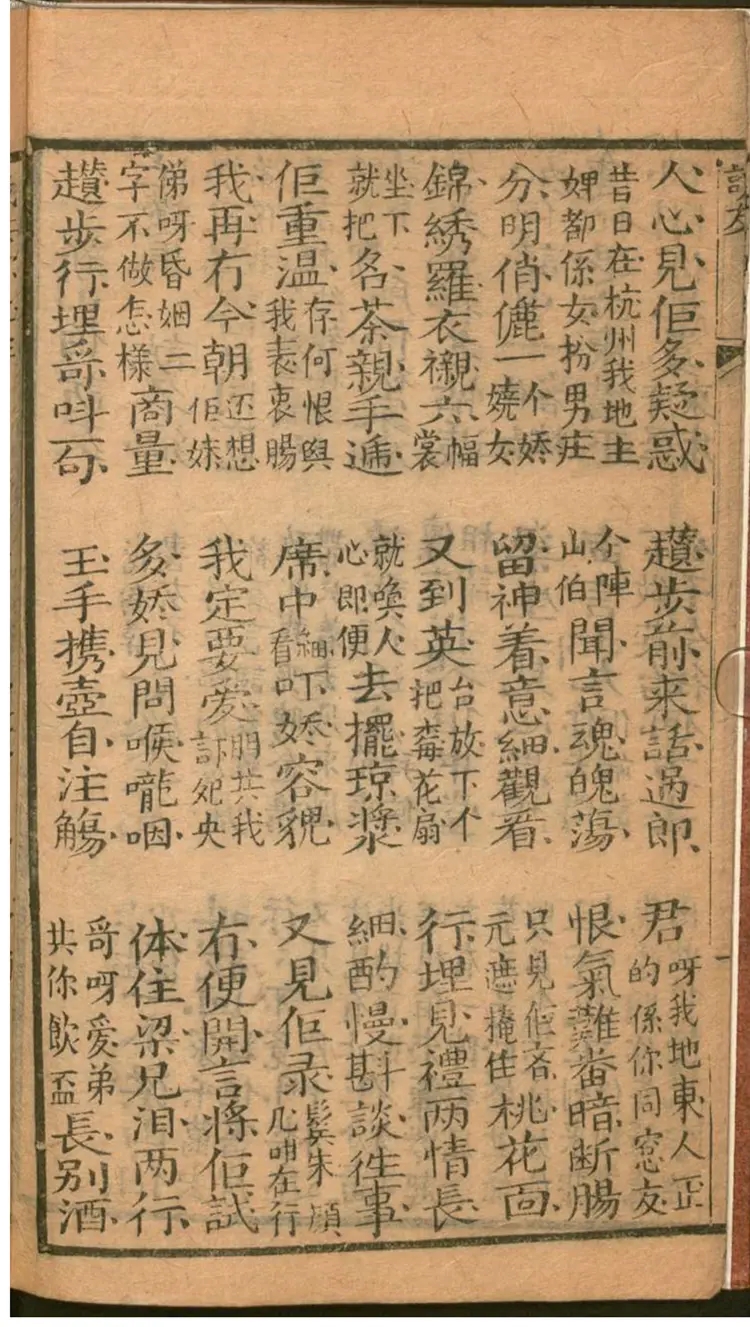 人心見佢多疑惑 趲步前来話过郎 君呀我地東人正的係你同窓友
昔日在杭州我地主婢都係女扮男庄 今陣山伯聞言魂魄蕩 恨氣難番暗断腸
分明俏儷一个娇嬈女 留神着意細觀看 只見佢吝元遮掩住桃花面
錦綉羅衣襯六幅裳 又到英台放下个把毒花扇 行埋見禮两情長
坐下就把名茶親手逓 就喚人心即便去擺琼漿 細酌慢斟談徃事
佢重温存何恨與我表衷腸 席中細看吓娇容貌 又見佢彔髮朱顔几咁在行
我再冇今朝还想佢妹 我定要爱共我央 冇便開言将佢試
俤呀昏姻二字不做怎様商量 多娇見問喉嚨咽 体住梁兄泪两行
趲步行埋哥呌一句 玉手携壺自注觴 哥呀爱弟共你飲盃長别酒